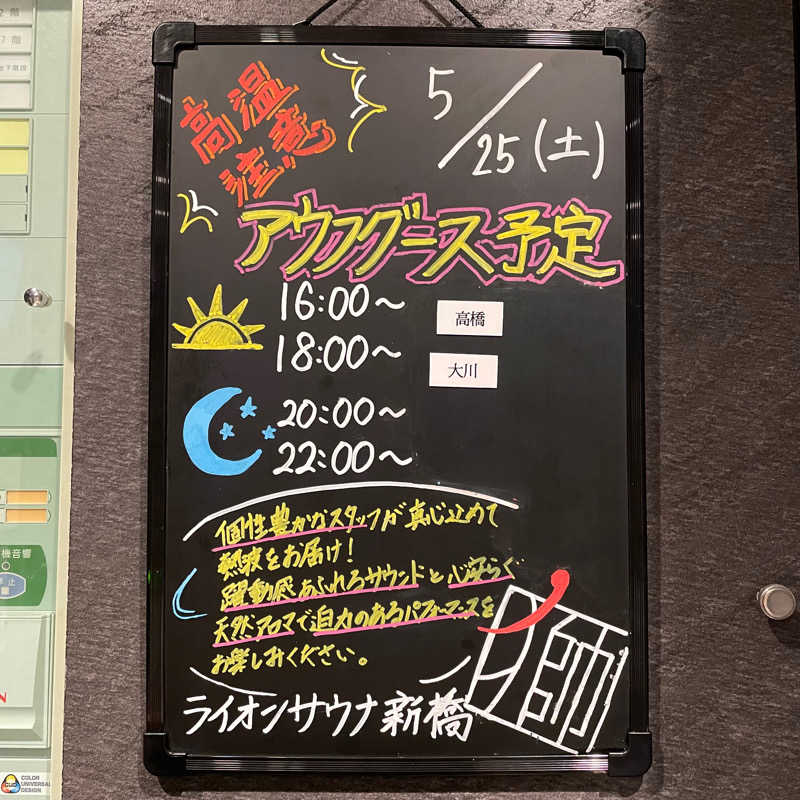 2階
7階
高温
注意
5/25(土)
アウフグース予定
16:00～ 高橋
18:00～ 大川
20:00～
22:00～
個性豊かなスタッフが真心込めて
熱波をお届け!
躍動感あふれるサウンドと心安らぐ
天然アロマで迫力のあるパフォーマンスを
お楽しみください。
ライオンサウナ新橋
機音響
COLOR
UNIVERSAL
DESIGN